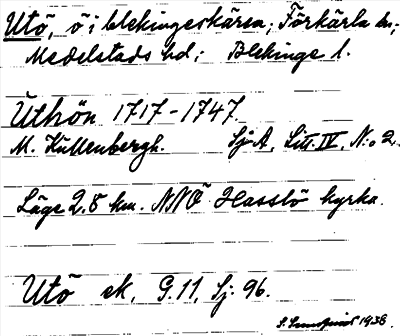 Utö, ö i blekingeskären; Förkärla sn;
Medelstads hd; Blekinge l.
Uthön 1717-1747.
M. Kullenbergh. Sj.A, Litt. IV, N:o 2.
Läge 2.8 km. NNÖ Hasslö kyrka.
Utö ek, G.11, Sj: 96.
1938.